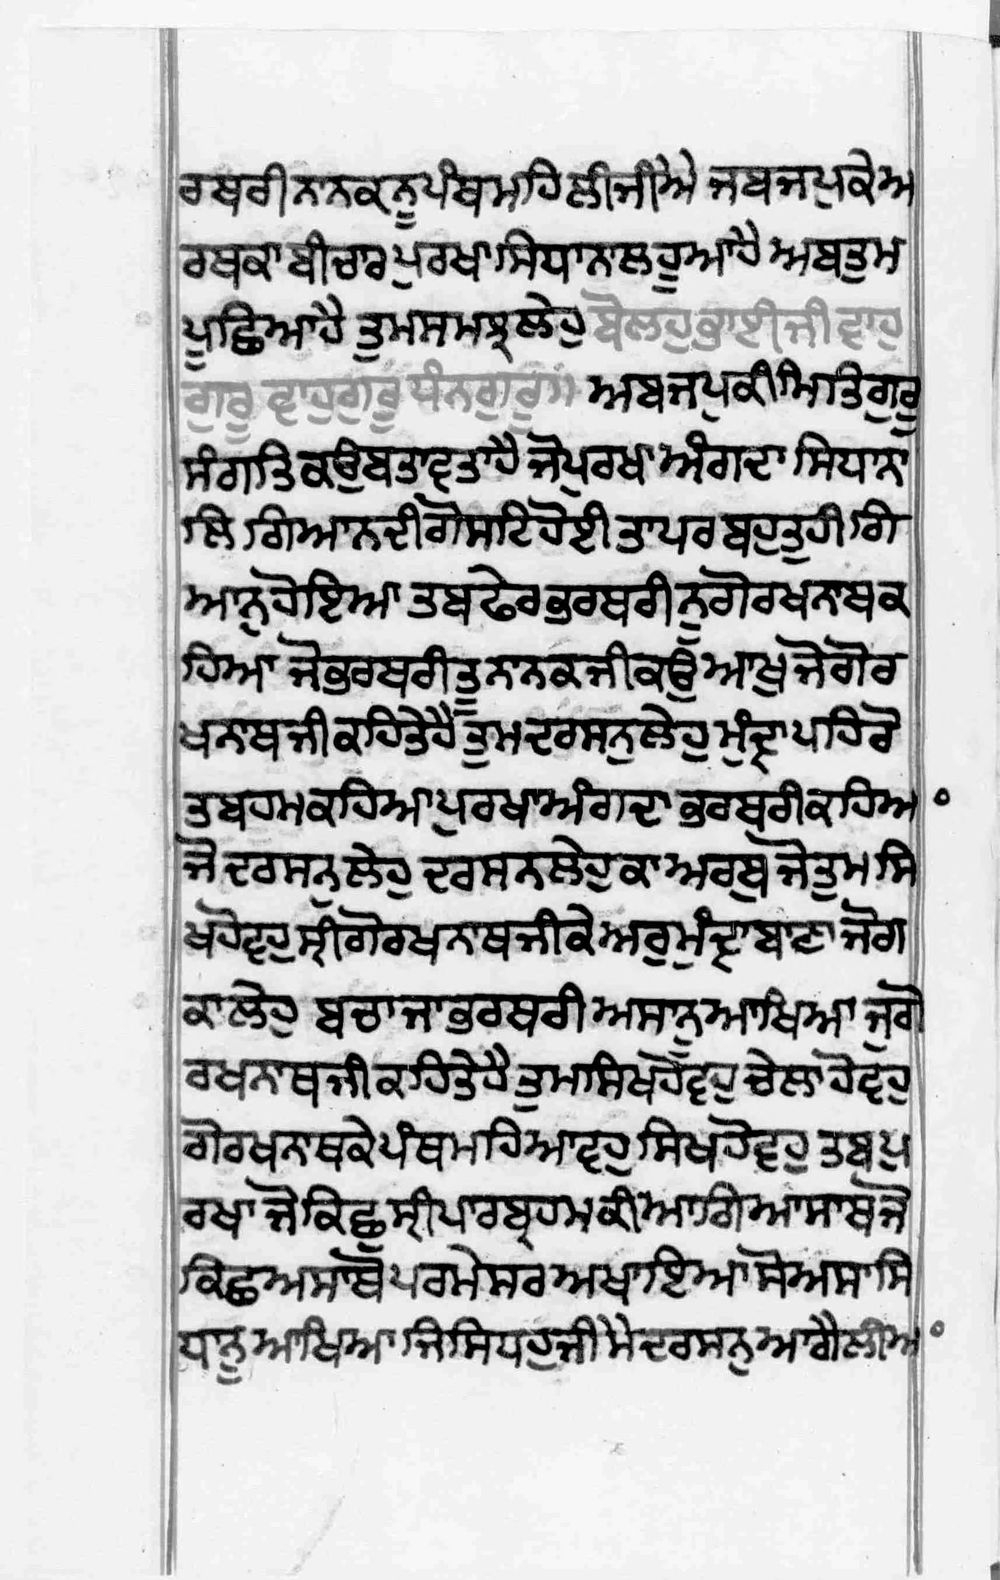 ਰਥਰੀ ਨਾਨਕ ਨੂ ਪੰਥ ਮਹਿ ਲੀਜੀਐ ਜਬ ਜਪੁ ਕੇ ਅ
ਰਥ ਕਾ ਬੀਚਾਰ ਪੁਰਖਾ ਸਿਧਾ ਨਾਲ ਹੂਆ ਹੈ ਅਬ ਤੁਮ
ਪੂਛਿਆ ਹੈ ਤੁਮ ਸਮਝ ਲੇਹੁ ਬੋਲਹੁ ਭਾਈ ਜੀ ਵਾਹੁ
ਗੁਰੂ ਵਾਹੁਗੁਰੂ ਧੰਨ ਗੁਰੂ॥ ਅਬ ਜਪੁ ਕੀ ਮਿਤਿ ਗੁਰੂ
ਸੰਗਤਿ ਕਉ ਬਤਾਵਤਾ ਹੈ ਜੋ ਪੁਰਖਾ ਅੰਗਦਾ ਸਿਧਾ ਨਾ
ਲਿ ਗਿਆਨ ਦੀ ਗੋਸਟਿ ਹੋਈ ਤਾ ਪਰ ਬਹੁਤੁ ਹੀ ਗਿ
ਆਨੁ ਹੋਇਆ ਤਬ ਫੇਰ ਭਰਥਰੀ ਨੂ ਗੋਰਖਨਾਥ ਕ
ਹਿਆ ਜੋ ਭਰਥਰੀ ਤੂ ਨਾਨਕ ਜੀ ਕਉ ਆਖੁ ਜੋ ਗੋਰ
ਖਨਾਥ ਜੀ ਕਹਿਤੇ ਹੈ ਤੁਮ ਦਰਸਨੁ ਲੇਹੁ ਮੁੰਦ੍ਰਾ ਪਹਿਰੋ
ਤਬ ਹਮ ਕਹਿਆ ਪੁਰਖਾ ਅੰਗਦਾ ਭਰਥਰੀ ਕਹਿਅ °
ਜੋ ਦਰਸਨੁ ਲੇਹੁ ਦਰਸਨ ਲੇਹੁ ਕਾ ਅਰਥੁ ਜੋ ਤੁਮ ਸਿ
ਖ ਹੋਵਹੁ ਸ੍ਰੀ ਗੋਰਖਨਾਥ ਜੀ ਕੇ ਅਰੁ ਮੁੰਦ੍ਰਾ ਬਾਣਾ ਜੋਗ
ਕਾ ਲੇਹੁ ਬਚਾ ਜਾ ਭਰਥਰੀ ਅਸਾ ਨੂ ਆਖਿਆ ਜੁ ਗੋ
ਰਖਨਾਥ ਜੀ ਕਹਿਤੇ ਹੈ ਤੁਮ ਸਿਖ ਹੋਵਹੁ ਚੇਲਾ ਹੋਵਹੁ
ਗੋਰਖਨਾਥ ਕੇ ਪੰਥ ਮਹਿ ਆਵਹੁ ਸਿਖ ਹੋਵਹੁ ਤਬ ਪੁ
ਰਖਾ ਜੋ ਕਿਛੁ ਸ੍ਰੀ ਪਾਰਬ੍ਰਹਮ ਕੀ ਆਗਿਆ ਸਾ ਥੇ ਜੋ
ਕਿਛ ਅਸਾ ਥੋ ਪਰਮੇਸਰ ਅਖਾਇਆ ਸੋ ਅਸਾ ਸਿ
ਧਾ ਨੂ ਆਖਿਆ ਜਿ ਸਿਧਹੁ ਜੀ ਮੈ ਦਰਸਨੁ ਆਗੈ ਲੀਅ °